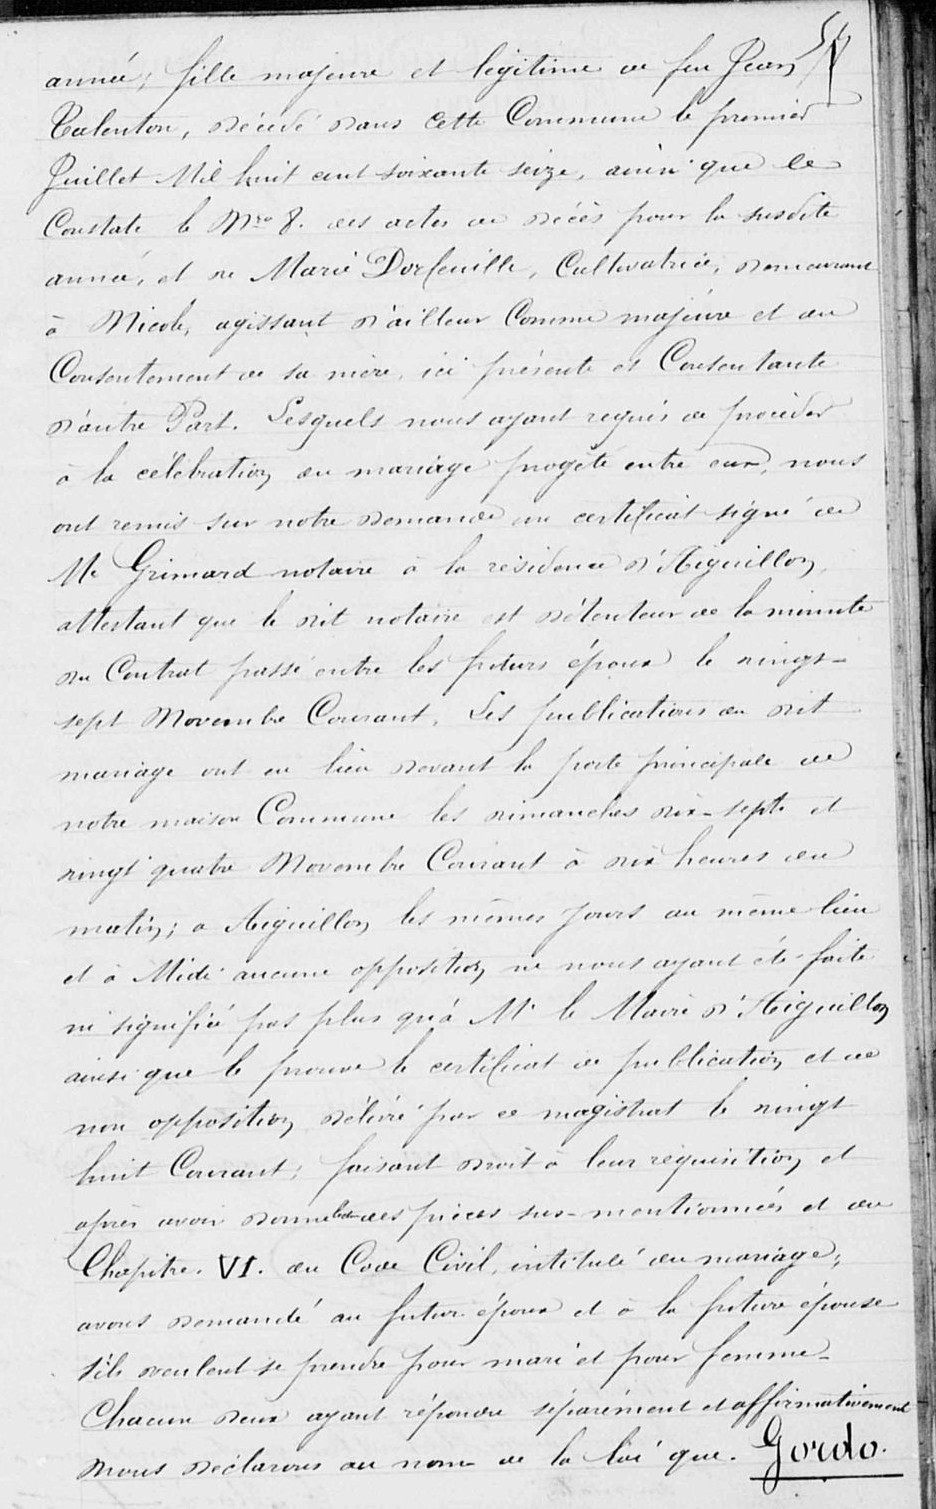 année, fille majeure et légitime de feu Jean
Talenton, décédé dans cette Commune le premier
Juillet Mil huit cent soixante seize, ainsi que le
Constate le Nro 8. des actes de décès pour la susdite
année, et de Marie Dorfeuille, Cultivatrice, demeurant
à Nicole, agissant d'ailleur Comme majeure et du
Consentement de sa mère, ici présente et Consentante
d'autre Part. Lesquels nous ayant requis de procéder
à la célébration du mariage progété entre eux, nous
ont remis sur notre demande un certificat signé de
Me Grimard notaire à la résidence d'Aiguillon,
attestant que le dit notaire est détenteur de la minute
du Contrat passé entre les futurs époux le vingt-
sept Novembre Courant, Les publications du dit
mariage ont eu lieu devant la porte principale de
notre maison Commune les dimanches dix-sept et
vingt quatre Novembre Courant à dix heures du
matin; a Aiguillon les mêmes jours au même lieu
et à Midi aucune opposition ne nous ayant été faite
ni signifiée pas plus qu'à Mr le Maire d'Aiguillon
ainsi que le prouve le certificat de publication et de
non opposition délivré par ce magistrat le vingt
huit Courant; faisant droit à leur requisition et
après avoir donné lecture des pièces sus-mentionnées et du
Chapitre. VI. du Code Civil, intitulé du mariage;
avons demandé au futur époux et à la future épouse
s'ils veulent se prendre pour mari et pour femme
Chacun deux ayant répondu séparément et affirmativement
Nous déclarons au nom de la loi que. Gordo.